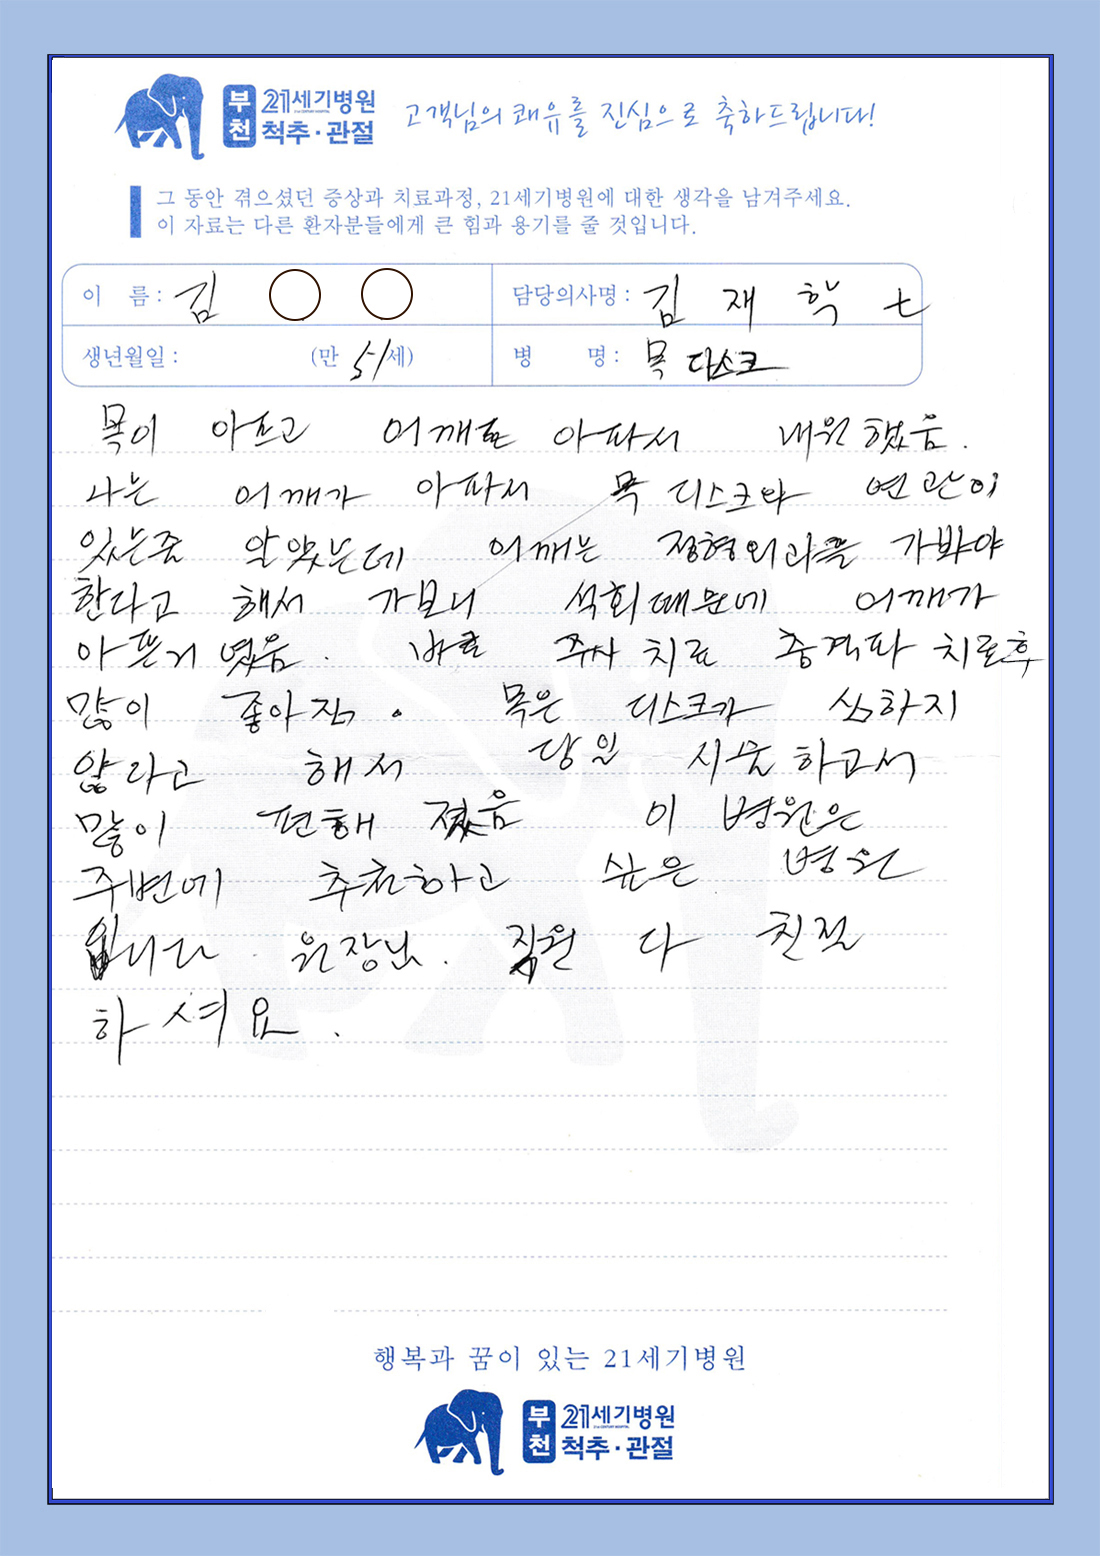 부천 21세기병원 척추·관절 고객님의 쾌유를 진심으로 축하드립니다!
그 동안 겪으셨던 증상과 치료과정, 21세기병원에 대한 생각을 남겨주세요.
이 자료는 다른 환자분들에게 큰 힘과 용기를 줄 것입니다.
이 름 : 김 ○ ○ 담당의사명 : 김 재 학
생년월일 : (만 51세) 병 명 : 목 디스크
목이 아프고 어깨도 아파서 내원했음.
나는 어깨가 아파서 목 디스크와 연관이
있는줄 알았는데 어깨는 정형외과를 가봐야
한다고 해서 가보니 석회때문에 어깨가
아픈거 였음. 바로 주사 치료 충격파 치료후
많이 좋아짐. 목은 디스크가 심하지
않다고 해서 당일 시술하고서
많이 편해 졌음 이 병원은
주변에 추천하고 싶은 병원
입니다. 원장님. 직원 다 친절
하셔요.
행복과 꿈이 있는 21세기병원
부천 21세기병원 척추·관절